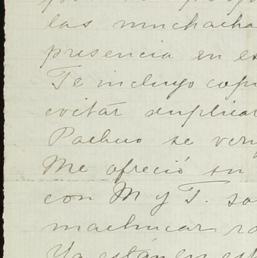 las muchacha
presencia en es
Te incluyo cop
evitar duplicar
Pachuo se
Me ofreció su
con M y T. so
machucar
Ya están en est